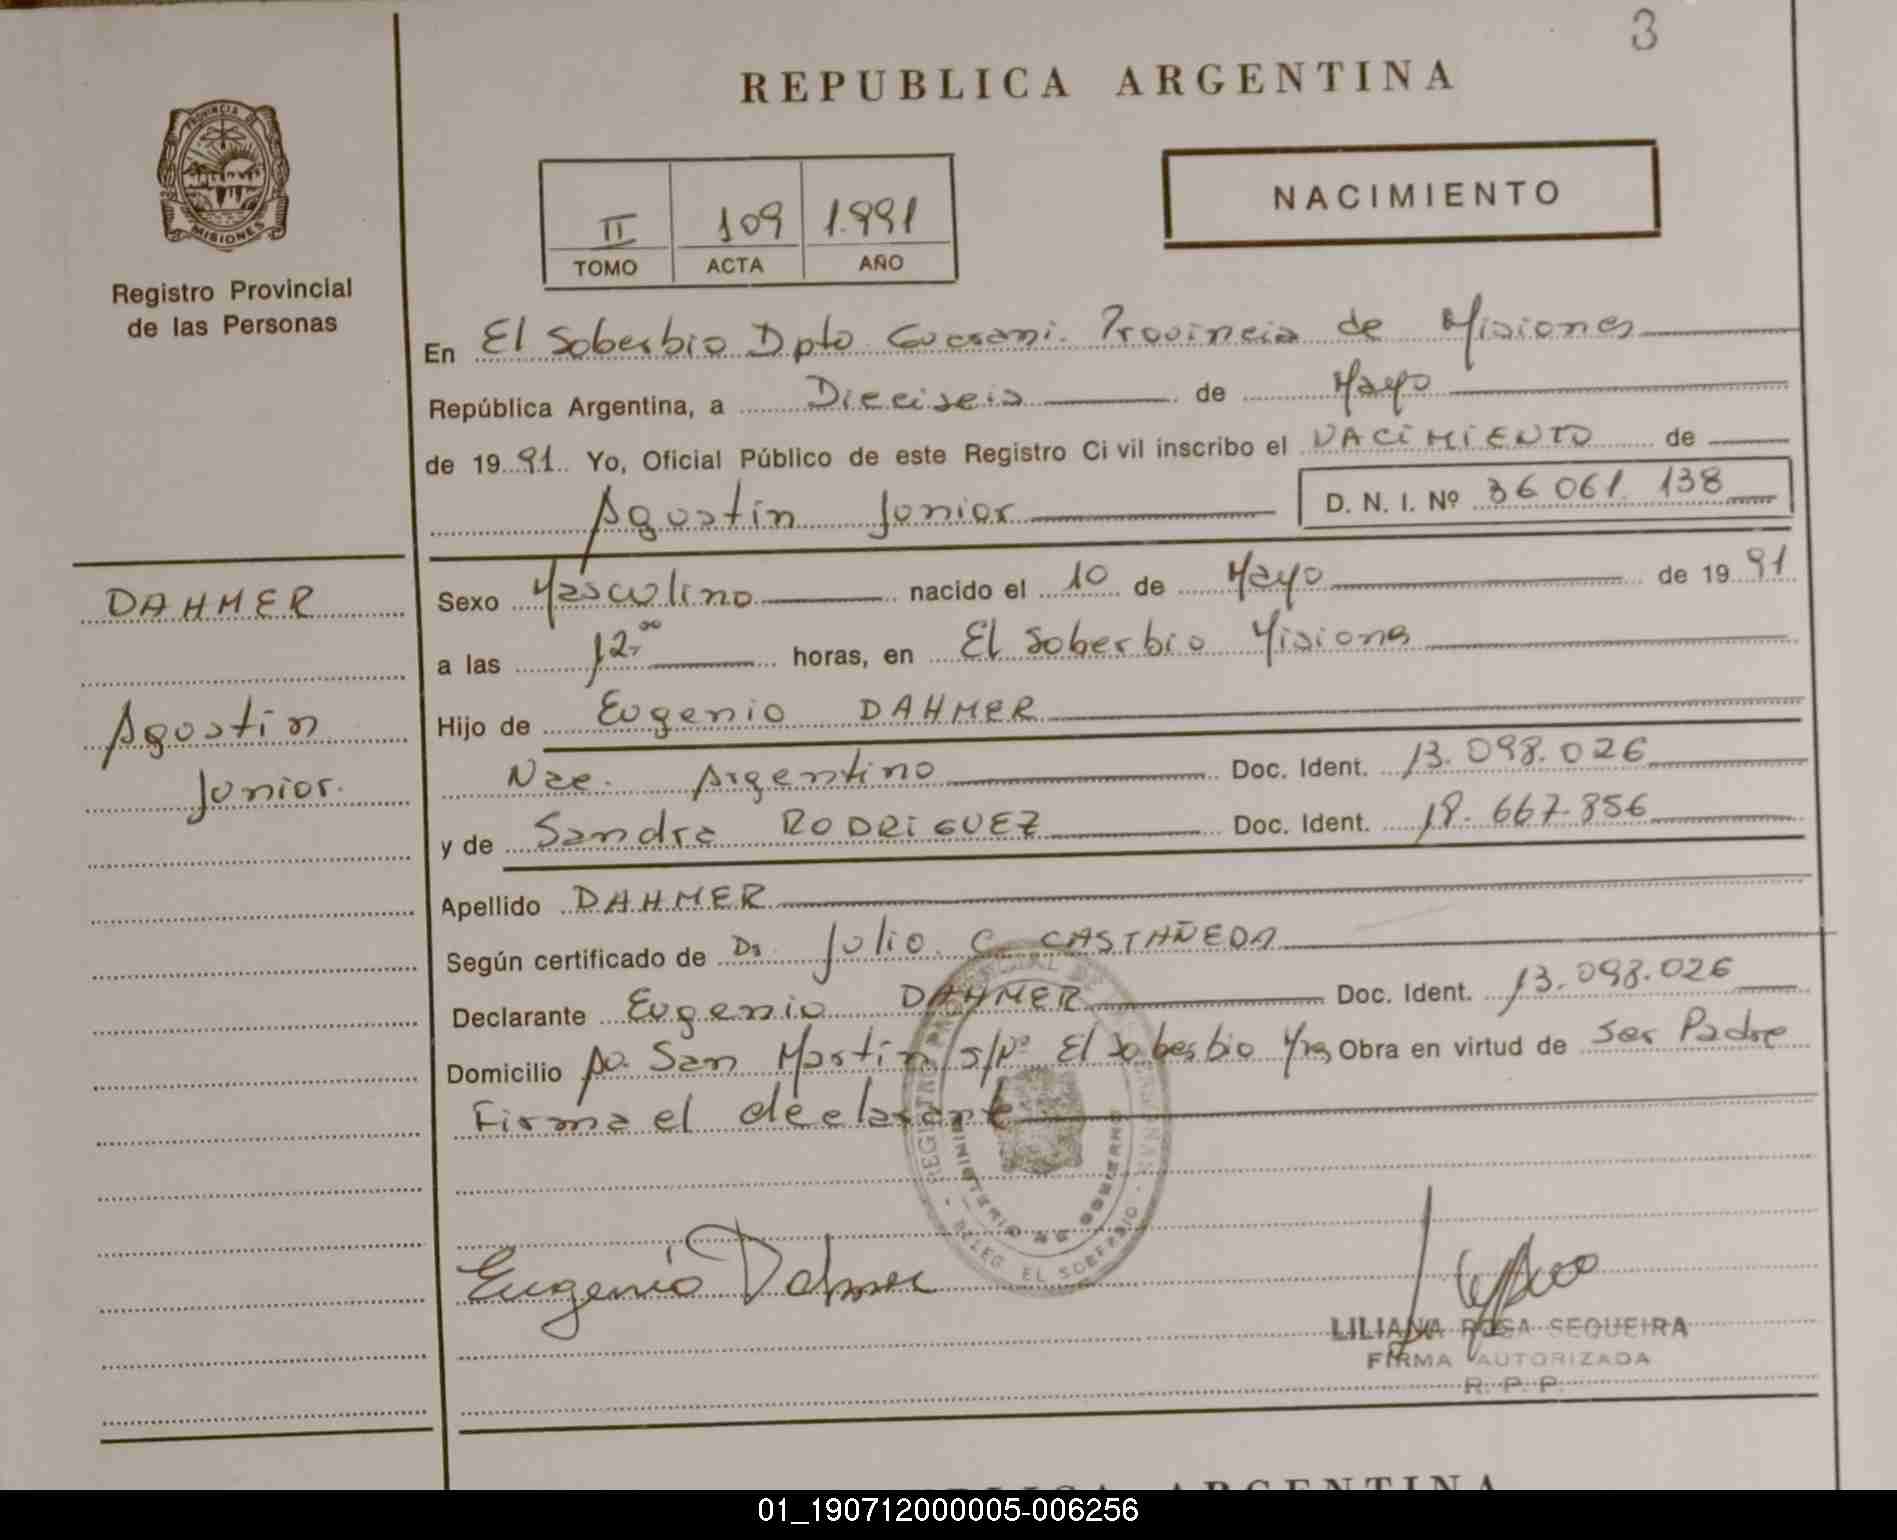 3
REPUBLICA ARGENTINA
PROVINCIA DE
MISIONES
Registro Provincial
de las Personas
II 109 1.991
TOMO ACTA AÑO
NACIMIENTO
En El Soberbio Dpto Guarani. Provincia de Misiones
República Argentina, a Dieciseis de Mayo
de 1991 Yo, Oficial Público de este Registro Civil inscribo el NACIMIENTO de
Agustin Junior D. N. I. Nº 36 061. 138
DAHMER
Agustin
Junior.
Sexo Masculino nacido el 10 de Mayo de 1991
a las 12,00 horas, en El Soberbio Misiones
Hijo de Eugenio DAHMER
Nac. Argentino Doc. Ident. 13.098.026
y de Sandra RODRIGUEZ Doc. Ident. 18.667.856
Apellido DAHMER
Según certificado de Dr Julio C. CASTAÑEDA
Declarante Eugenio DAHMER Doc. Ident. 13.098.026
Domicilio Av. San Martin s/Nº El Soberbio Mnes Obra en virtud de Ser Padre
Firma el declarante
MINISTERIO DE GOBIERNO
DELEG. EL SOBERBIO
Eugenio Dahmer
LILIANA ROSA SEQUEIRA
FIRMA AUTORIZADA
R. P. P.
ARGENTINA
01_190712000005-006256